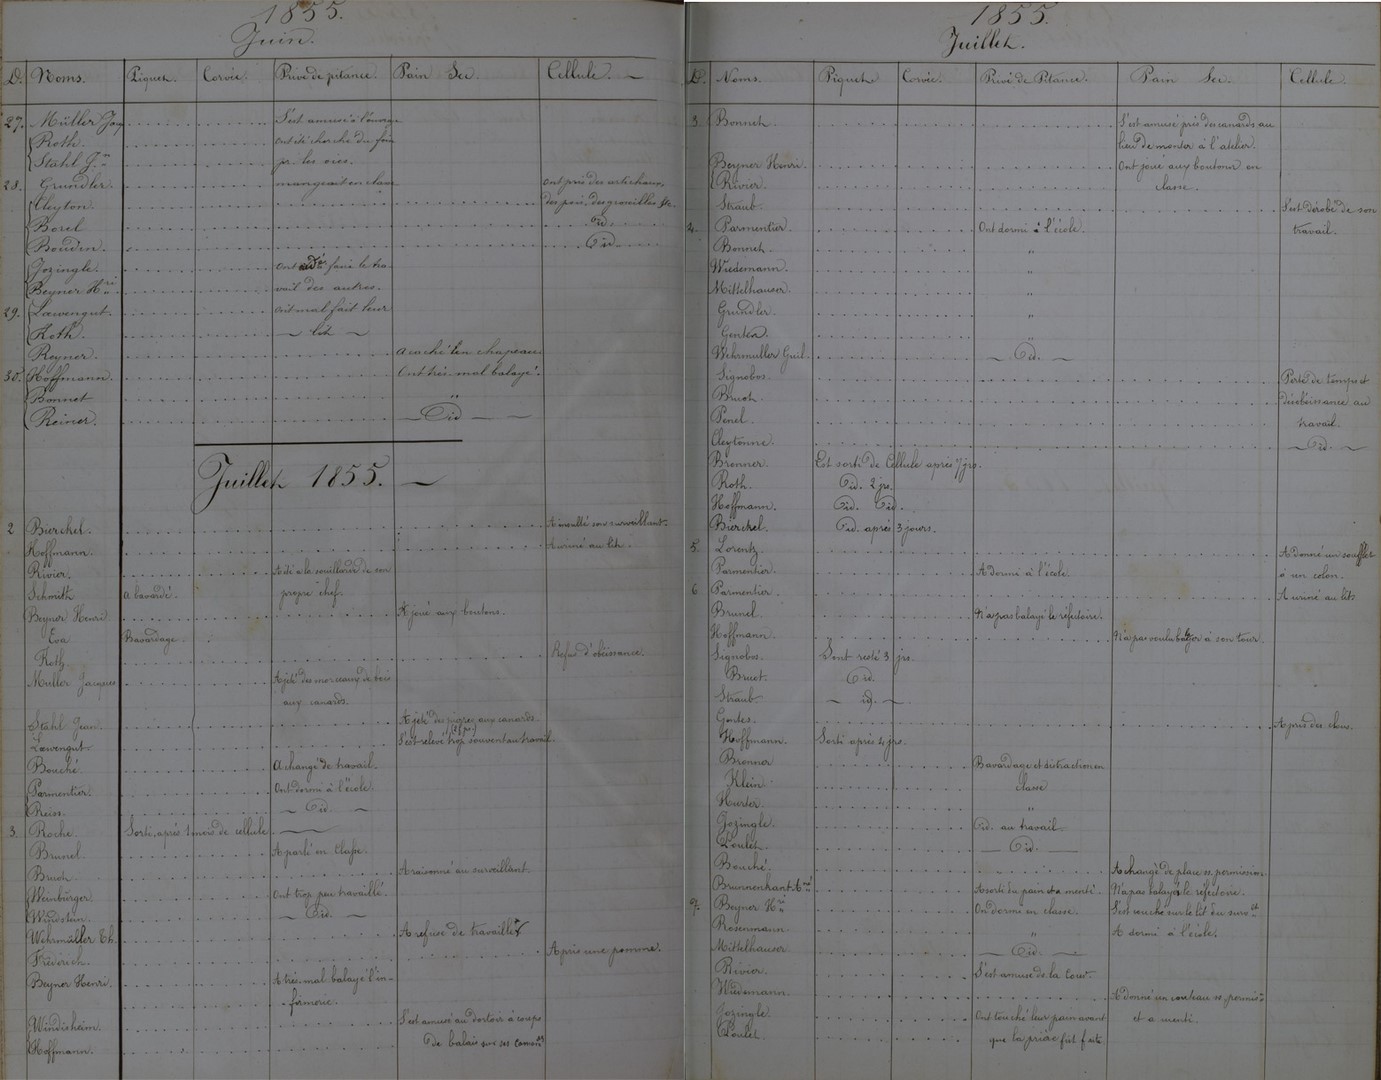 1855.
Juin.
D. Noms. Piquet. Corvée. Privé de pitance. Pain Sec. Cellule.
27. Müller Jacq S'est amusé à l'ouvrage
Roth. ont été cherché du foin
Stahl Jn pr. les oies.
28. Grundler. mangeait en classe ont pris des artichaux,
Cleyton. des pois, des groseilles &c.
Borel Id.
Boudin. Id.
Jozingle. ont faire le tra-
Beyner Hri vail des autres.
29. Lœwengut. ont mal fait leur
Roth. lit
Reyner. a caché un chapeau.
30. Hoffmann. Ont très-mal balayé.
Bonnet "
Reiner. Id
Juillet 1855.
2 Bierchel. A insulté son surveillant.
Hoffmann. A uriné au lit.
Rivier. A été à la souillarde de son
Schmith a bavardé. propre chef.
Beyner Henri A joué aux boutons.
Eva Bavardage.
Roth. Refus d'obéissance.
Muller Jacques A jeté des morceaux de bois
aux canards.
Stahl Jean. A jeté des aux canards.
Lœwengut. S'est relevé trop souvent au travail
Bouché. A changé de travail.
Parmentier. Ont dormi à l'école.
Preiss. Id.
3. Roche. Sorti, après 1 mois de cellule
Brunel. A parlé en Classe.
Bruch. A raisonné au surveillant.
Weinbürger. Ont trop peu travaillé.
Windstein. Id.
Wehrmüller Th. A refusé de travailler
Friderich. A pris une pomme.
Beyner Henri. A très-mal balayé l'in-
firmerie.
Windisheim. S'est amusé au dortoir à coups
Hoffmann. de balais sur ses
1855.
Juillet.
D. Noms. Piquet Corvée. Privé de Pitance. Pain Sec. Cellule.
3. Bonnet S'est amusé près des canards au
lieu de monter à l'atelier.
Beyner Henri. Ont joué aux boutons en
Rivier. classe.
Straub. S'est dérobé de son
4. Parmentier. Ont dormi à l'école. travail.
Bonnet. "
Wiedemann. "
Mittelhauser. "
Grundler. "
Genten. "
Wehrmuller Guil. Id.
Signobos. Perte de temps et
Bruch désobéissance au
Penel travail.
Cleytonne. Id.
Brenner. Est sorti de Cellule après 7 jrs.
Roth. Id. 2 jrs.
Hoffmann. Id. Id.
Bierchel. Id. après 3 jours.
5. Lorentz. A donné un soufflet
Parmentier. A dormi à l'école. à un colon.
6 Parmentier. A uriné au lit.
Brunel N'a pas balayé le réfectoire.
Hoffmann. N'a pas voulu balayer à son tour.
Signobos. Sont resté 3 jrs.
Bruot. Id.
Straub. id.
Gentes. A pris des clous.
Hoffmann. Sorti après 4 jrs.
Brenner Bavardage et distraction en
Klein classe
Hurter. "
Jozingle. Id. au travail.
Loulet. Id.
Bouché. A changé de place ss. permission
Brunnenkant Ané A sorti du pain et a menti. N'a pas balayé le réfectoire.
7. Beyner Hri On dormi en classe. S'est couché sur le lit du survt
Rosenmann " A dormi à l'école.
Mittelhauser Id.
Rivier. S'est amusé ds la Cour.
Wiedemann. A donné un couteau ss permison
Jozingle. Ont touché leur pain avant et a menti.
Loulet. que la prière fût faite